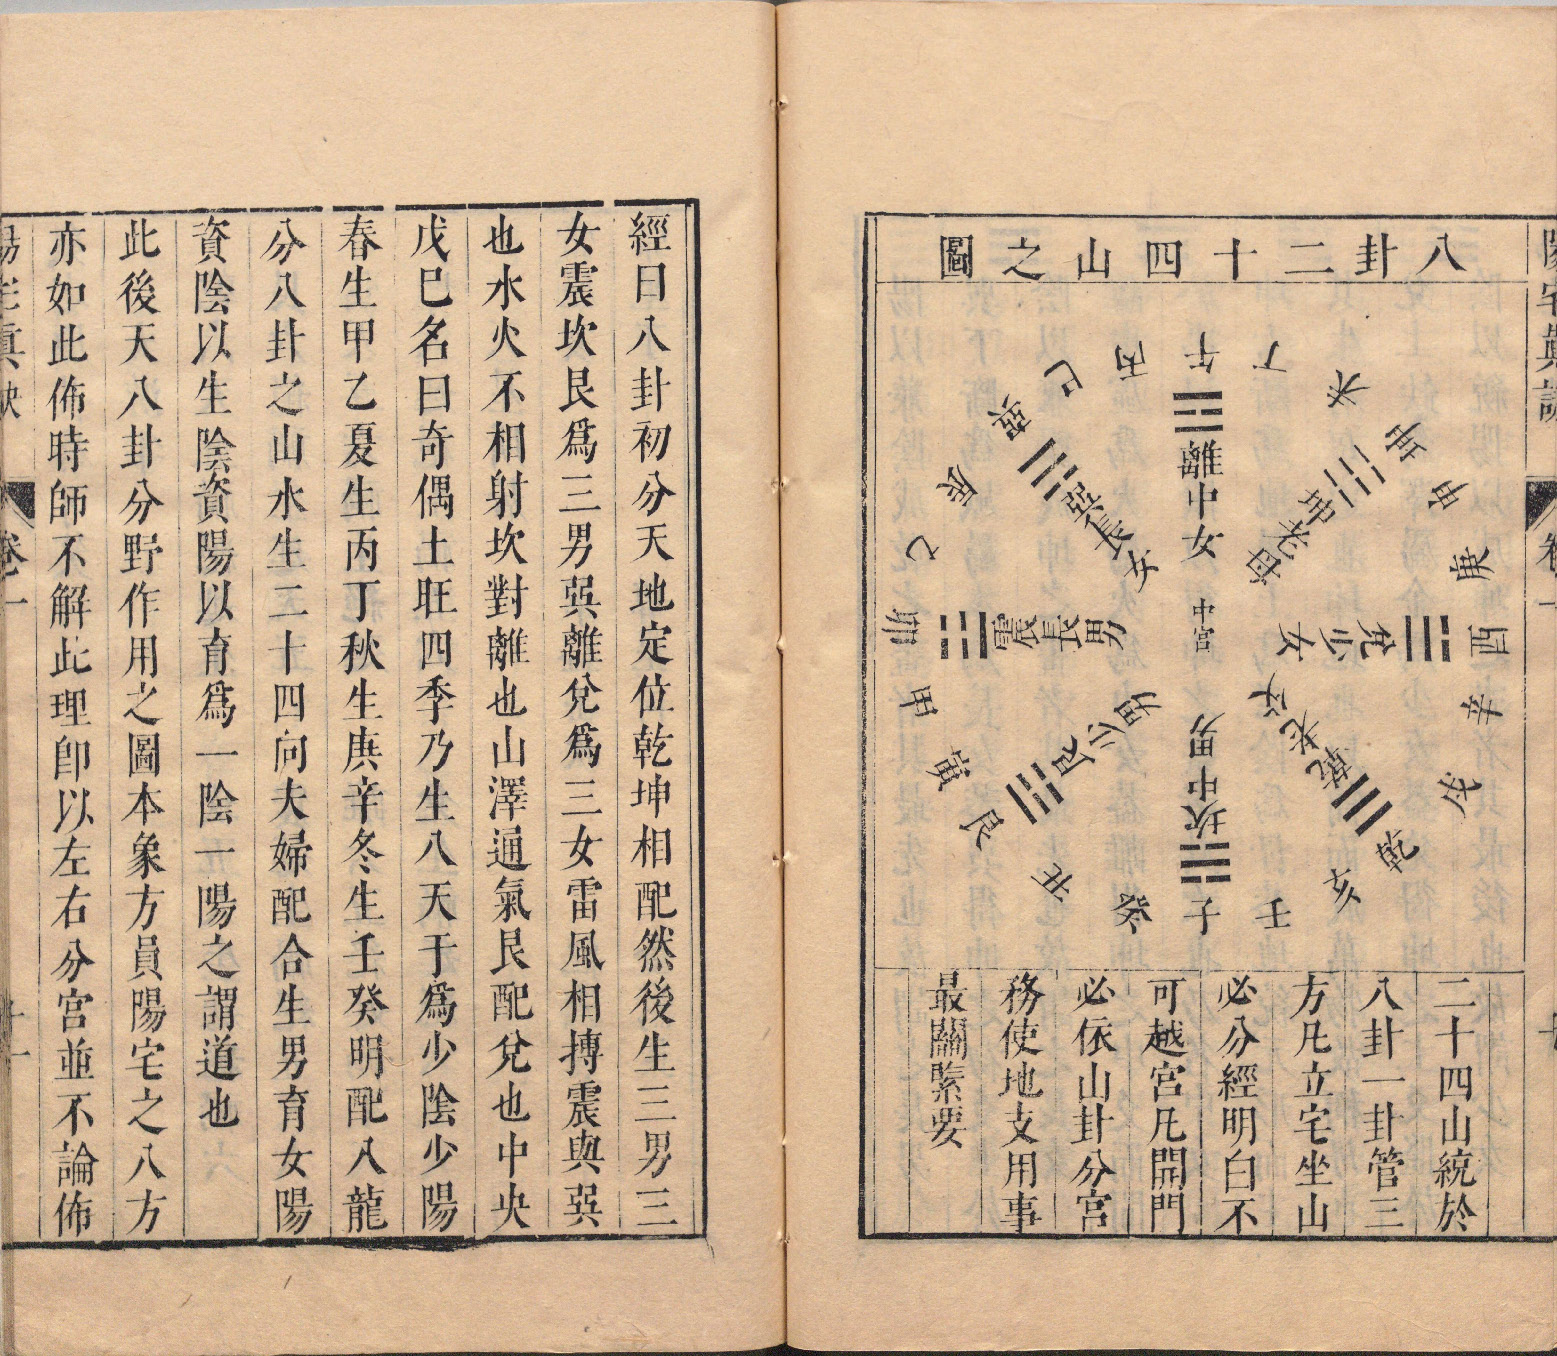 八卦二十四山之圖
午
丁
未
坤
申
庚
酉
辛
戌
乾
亥
壬
子
癸
丑
艮
寅
甲
卯
乙
辰
巽
巳
丙
離中女
坤老母
兌少女
乾老父
坎中男
艮少男
震長男
巽長女
中宮
二十四山統於
八卦一卦管三
方凡立宅坐山
必分經明白不
可越宮凡開門
必依山卦分宮
務使地支用事
最關緊要
經曰八卦初分天地定位乾坤相配然後生三男三
女震坎艮為三男巽離兌為三女雷風相搏震與巽
也水火不相射坎對離也山澤通氣艮配兌也中央
戊巳名曰奇偶土旺四季乃生八天干為少陰少陽
春生甲乙夏生丙丁秋生庚辛冬生壬癸明配八龍
分八卦之山水生二十四向夫婦配合生男育女陽
資陰以生陰資陽以育為一陰一陽之謂道也
此後天八卦分野作用之圖本象方員陽宅之八方
亦如此佈時師不解此理卽以左右分宮並不論佈
卷一
十一